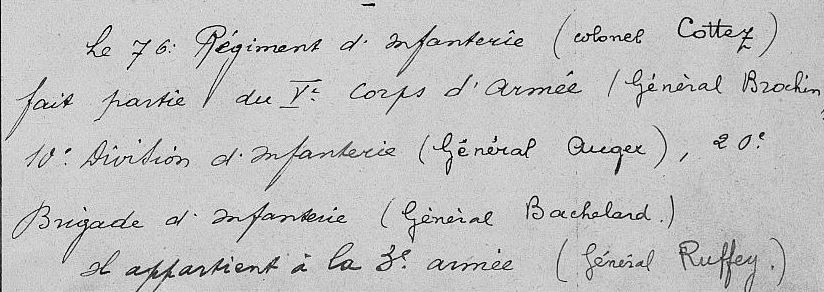 Le 76e Régiment d'Infanterie (colonel Cottez)
fait partie du Ve Corps d'Armée (Général Brochin,
10e Division d'Infanterie (Général Auger), 20e
Brigade d'Infanterie (Général Bachelard.)
Il appartient à la 3e armée (Général Ruffey.)